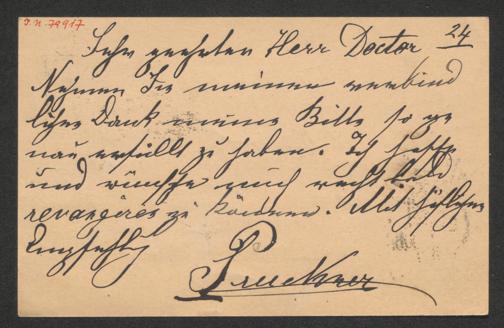 I.N. 79917
24
Sehr geehrter Herr Doctor
Nehmen Sie meinen verbind
lichen Dank meine Bitte so ge
nau erfüllt zu haben. Ich hoffe
und wünsche mich recht bald
zu können. Mit
Empfehlg
Pruckner